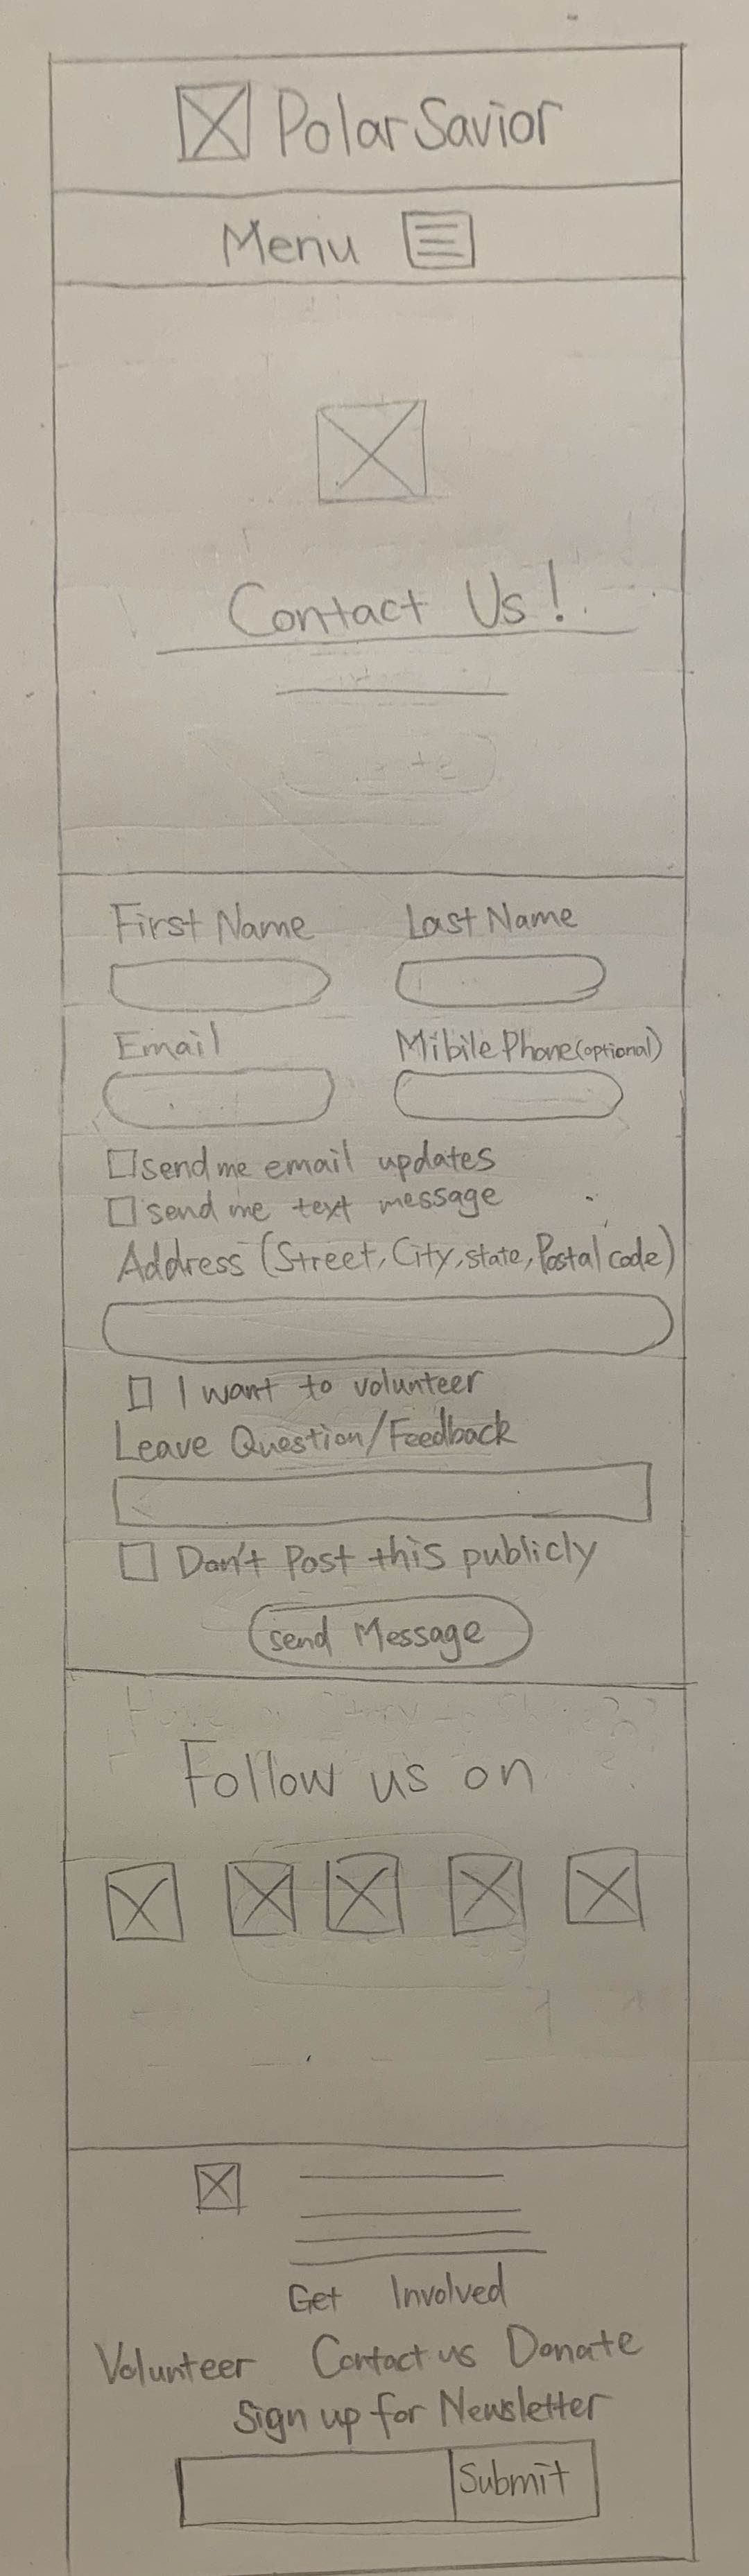 Polar Savior
Menu
Contact Us!
First Name Last Name
Email Mibile Phone (optional)
send me email updates
send me text message
Address (Street, City, state, Postal code)
I want to volunteer
Leave Question/Feedback
Don't Post this publicly
send Message
Follow us on
Get Involved
Volunteer Contact us Donate
Sign up for Newsletter
Submit